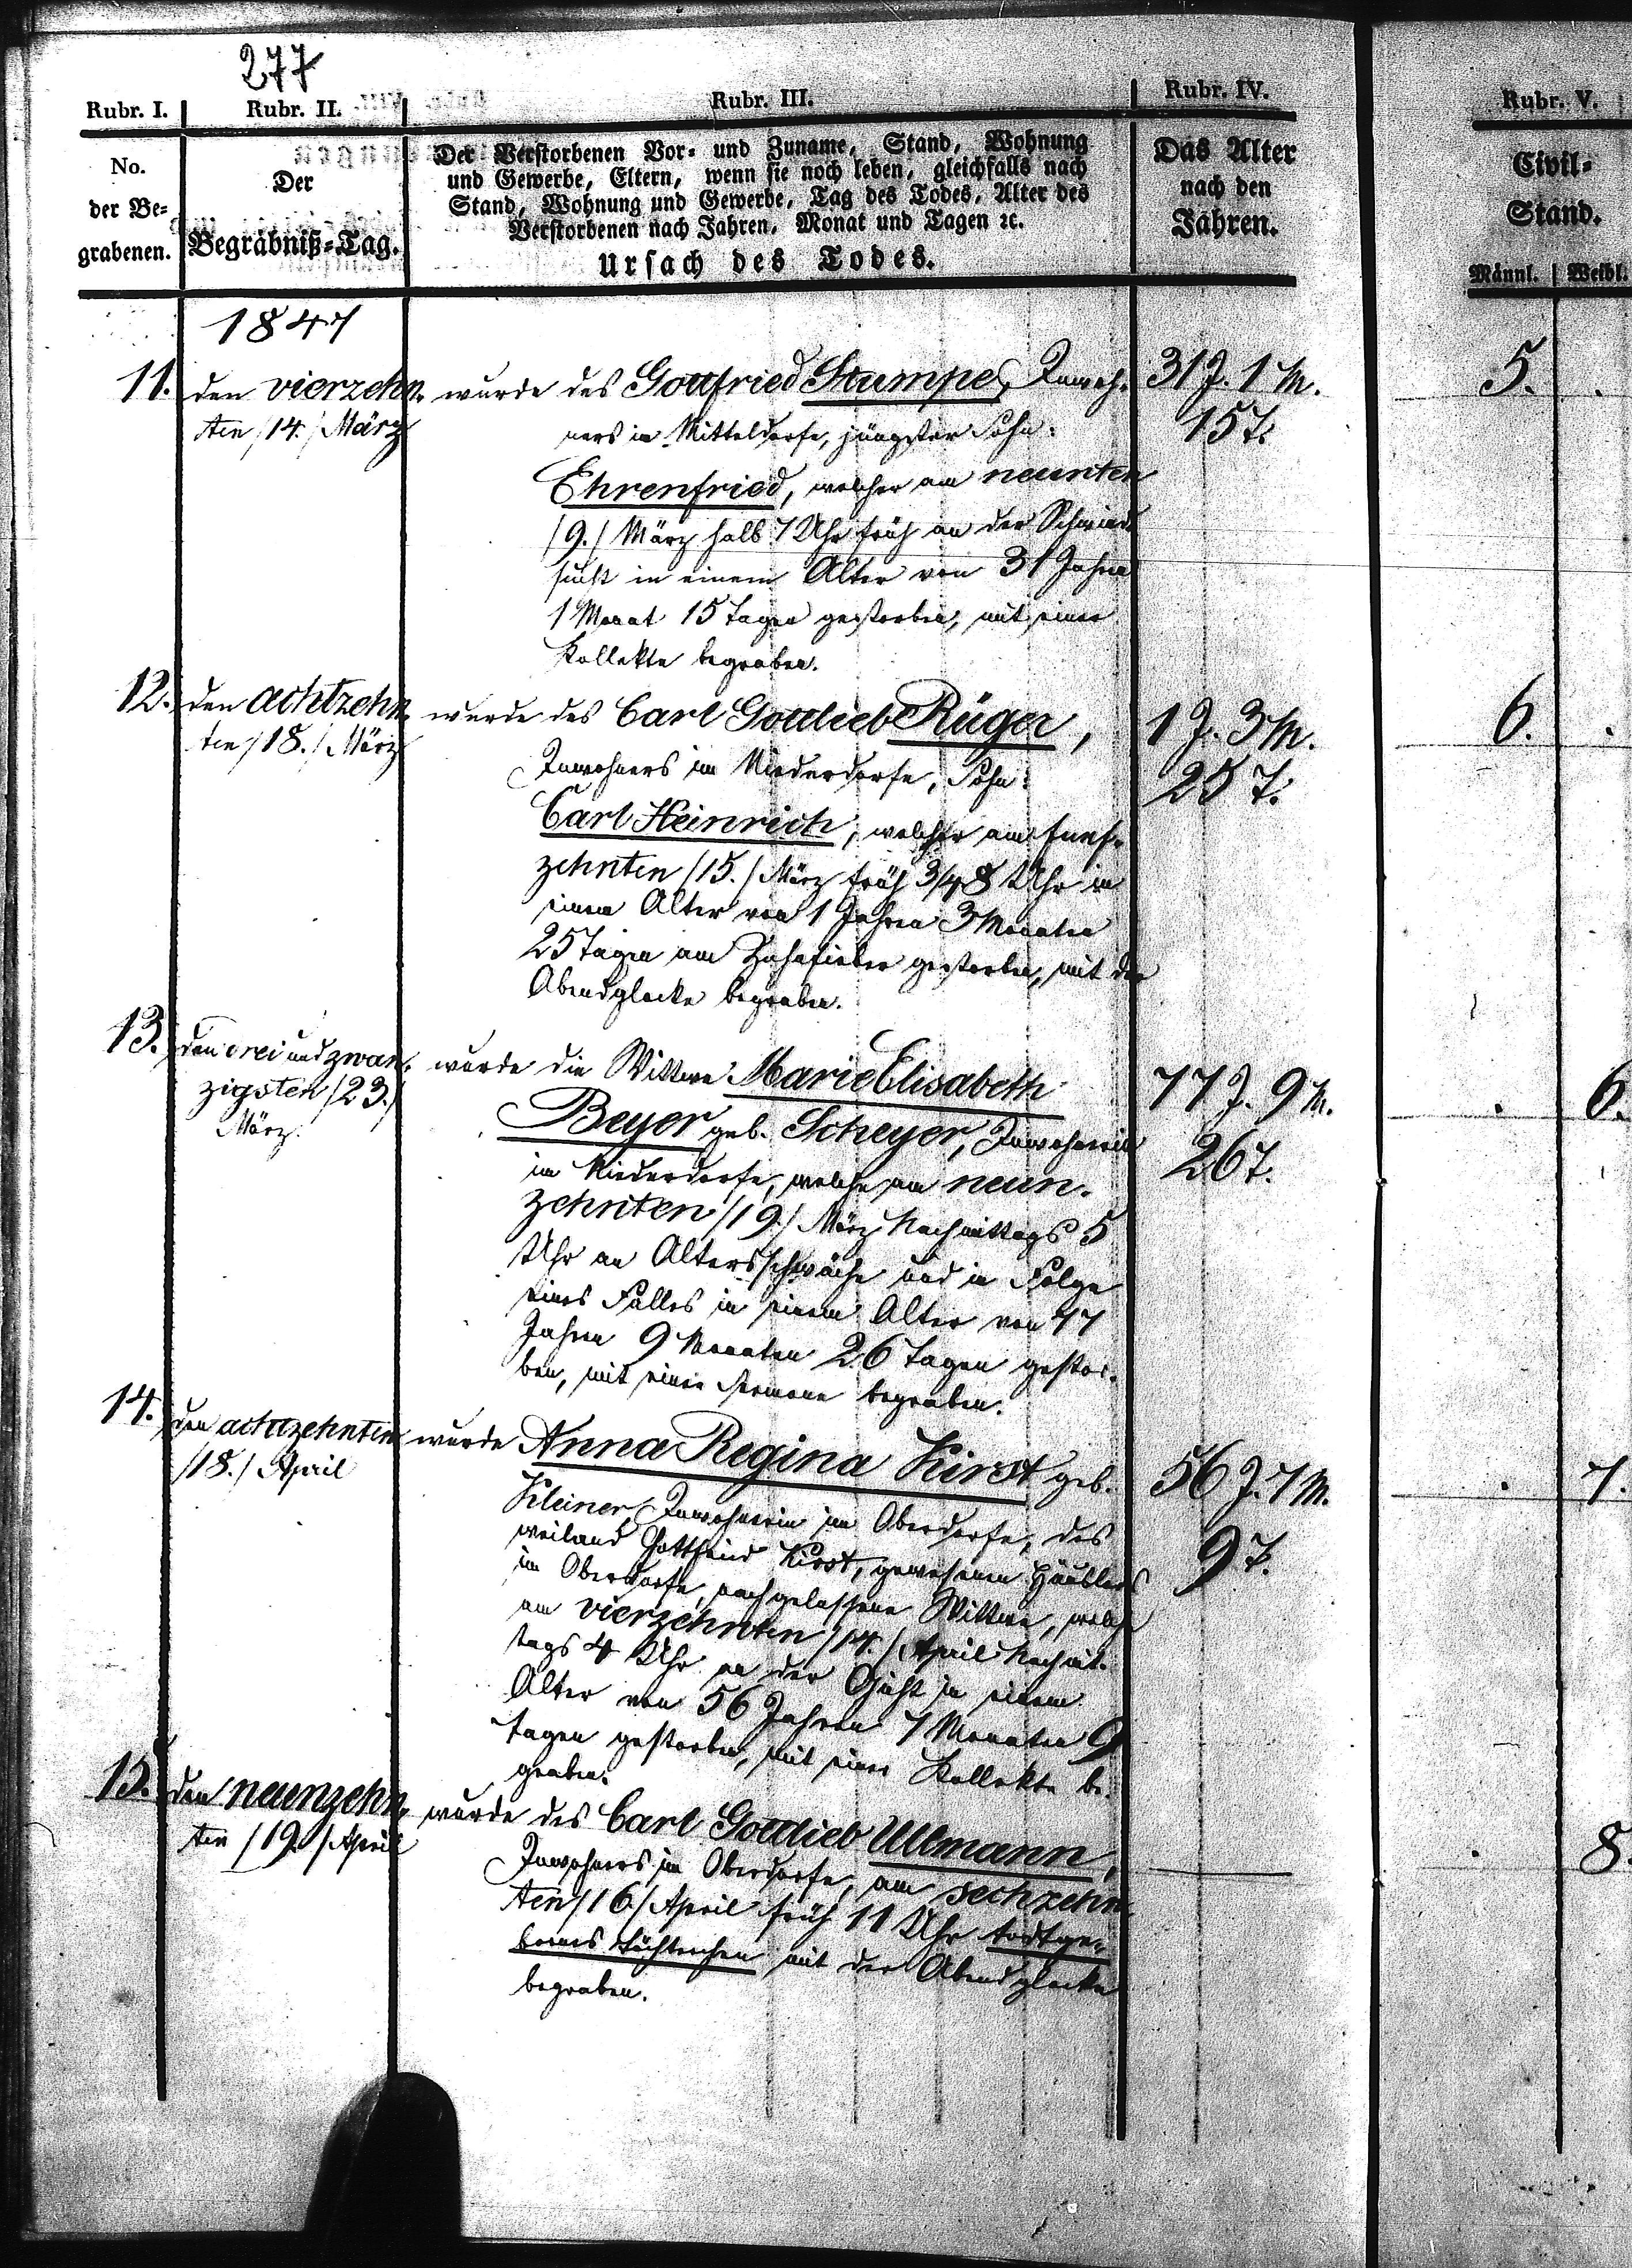 277
Rubr. I. Rubr. II. Rubr. III. Rubr. IV. Rubr. V.
No.
der Be-
grabenen.
Der
Begräbniß-Tag.
Der Verstorbenen Vor- und Zuname, Stand, Wohnung
und Gewerbe, Eltern, wenn sie noch leben, gleichfalls nach
Stand, Wohnung und Gewerbe, Tag des Todes, Alter des
Verstorbenen nach Jahren, Monat und Tagen ꝛc.
Ursach des Todes.
Das Alter
nach den
Jahren.
Civil-
Stand.
Männl. Weibl.
1847
11. den vierzehn- wurde des Gottfried Stumpe, Inwoh- 31 J. 1 M. 5. .
ten /14./ März ners im Mitteldorfe, jüngster Sohn: 15 T.
Ehrenfried, welcher am neunten
/9./ März halb 7 Uhr früh an der Schwind-
sucht in einem Alter von 31 Jahren
1 Monat 15 Tagen gestorben, mit einer
Kollekte begraben.
12. den achtzehn- wurde des Carl Gottlieb Rüger, 1 J. 3 M. 6. .
ten /18./ März Inwohners im Niederdorfe, Sohn: 25 T.
Carl Heinrich, welcher am funf-
zehnten /15./ März früh 3/4 8 Uhr in
einem Alter von 1 Jahren 3 Monaten
25 Tagen am Zahnfieber gestorben, mit der
Abendglocke begraben.
13. den drei und zwan- wurde die Wittwe Marie Elisabeth 77 J. 9 M. . 6.
zigsten /23./ Beyer geb. Scheyer, Inwohnerin 26 T.
März. im Niederdorfe, welche am neun-
zehnten /19./ März Nachmittags 5
Uhr an Altersschwäche und in Folge
eines Falles in einem Alter von 77
Jahren 9 Monaten 26 Tagen gestor-
ben, mit einer Sermone begraben.
14. den achtzehnten wurde Anna Regina Kirst geb. 56 J. 7 M. . 7.
/18./ April Kleiner, Inwohnerin im Oberdorfe, des 9 T.
weiland Gottfried Kirst, gewesenen Häuslers
im Oberdorfe, nachgelassene Wittwe, welche
am vierzehnten /14./ April Nachmit-
tags 4 Uhr an der Gicht in einem
Alter von 56 Jahren 7 Monaten 9
Tagen gestorben, mit einer Kollekte be-
graben.
15. den neunzehn- wurde des Carl Gottlieb Ullmann, . 8.
ten /19./ April Inwohners im Oberdorfe, am sechzehn-
ten /16./ April früh 11 Uhr todtge-
bornes Töchterchen mit der Abendglocke
begraben.